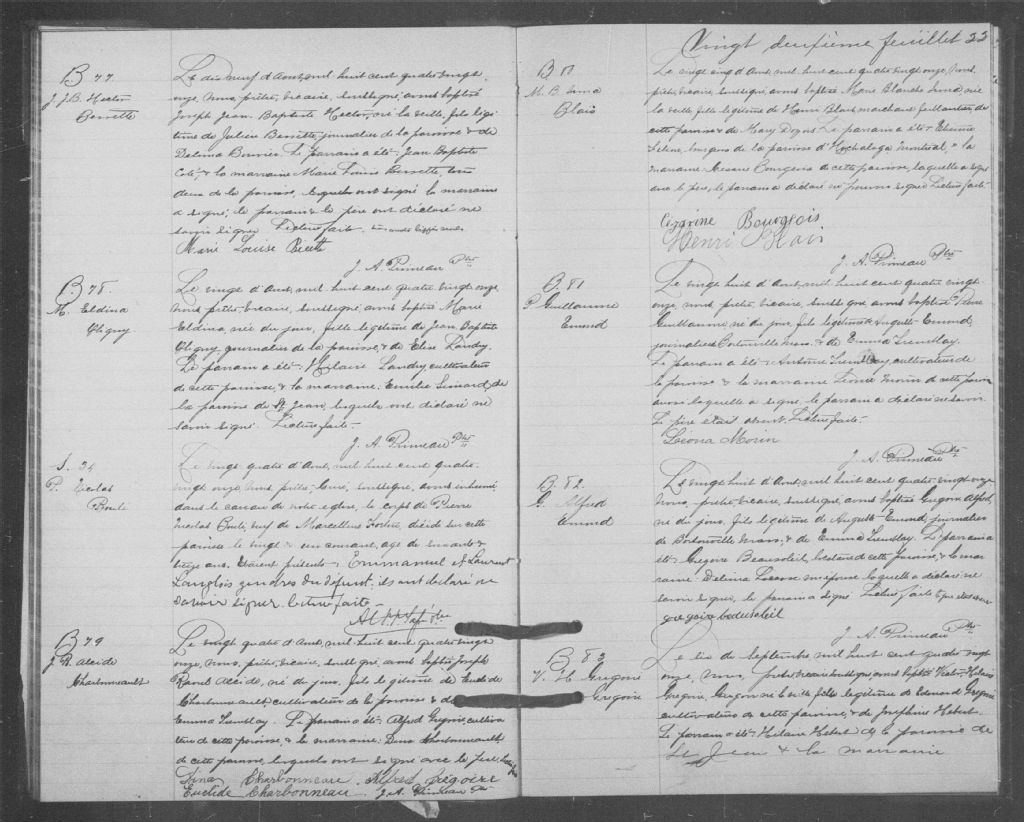 B 77
J. J. B. Hector
Le dix neuf d'Aout, mil huit cent quatre vingt
onze, nous, prêtre, vicaire, soussigné, avons baptisé
Joseph Jean Baptiste Hector, né la veille, fils légi
time de Julien journalier de la paroisse & de
Delima Le parrain a été Jean Baptiste
Coté & la marraine Marie Louise tous
deux de la paroisse, lesquels ont signé la marraine
a signé, le parrain & le père ont déclaré ne
savoir signer. Lecture faite.
Marie Louise
J. A. Primeau Ptre
B. 78.
M. Eldina
Le vingt d'Aout, mil huit cent quatre vingt onze
nous prêtre, vicaire, soussigné avons baptisé Marie
Eldina, née du jour, fille légitime de Jean Baptiste
journalier de la paroisse, & de Elise Landry.
Le parrain a été Hilaire Landry cultivateur
de cette paroisse, & la marraine Emilie Simard, de
la paroisse de St Jean, lesquels ont déclaré ne
savoir signer. Lecture faite.
J. A. Primeau Ptre
S. 34
P. Nicolas
Boulé
Le vingt quatre d'Aout, mil huit cent quatre
vingt onze, nous, prêtre, curé, soussigné, avons inhumé
dans le caveau de notre église, le corps de Pierre
Nicolas Boulé, veuf de Marcelline décédé en cette
paroisse le vingt & un courant, age de soixante &
treize ans. Etaient présents Emmanuel et Laurent
Langlois gendres du défunt, ils ont déclaré ne
savoir signer lecture faite.
B 79
J. R. Alcide
Charbonneault
Le vingt quatre d'Aout, mil huit cent quatre vingt
onze, nous, prêtre, vicaire, soussigné, avons baptisé Joseph
Raoul Alcide, né du jour, fils légitime de Euclide
Charbonneault cultivateur de la paroisse & de
Emma Tremblay. Le parrain a été Alfred Grégoire, cultiva
teur de cette paroisse, & la marraine Dina Charbonneault,
de cette paroisse, lesquels ont signé avec le père,
Dina Charbonneau Alfred Grégoire
Euclide Charbonneau J. A. Primeau Ptre
Vingt deuxième feuillet 22
B 80
M. B. Irma
Blais
Le vingt cinq d'Aout, mil huit cent quatre vingt onze, nous,
prêtre, vicaire, soussigné, avons baptisé Marie Blanche Irma, née
la veille, fille légitime de Henri Blais, marchand ferblantier, de
cette paroisse & de Mary Le parrain a été Etienne
de la paroisse d'Hochelaga Montreal, & la
marraine Bourgeois de cette paroisse, laquelle a signé
avec le père, le parrain a déclaré ne pouvoir signer Lecture faite.
Bourgeois
Henri Blais
J. A. Primeau Ptre
B. 81
P. Guillaume
Emond
Le vingt huit d'Aout, mil huit cent quatre vingt
onze, nous prêtre, vicaire, soussigné avons baptisé Pierre
Guillaume, né du jour, fils légitime de Auguste Emond,
journalier de Mass. & de Emma Tremblay.
Le parrain a été Antoine Tremblay cultivateur de
la paroisse & la marraine Léona Morin de cette paroisse
laquelle a signé, le parrain a déclaré ne savoir.
Le père étant absent. Lecture faite.
Léona Morin
J. A. Primeau Ptre
B. 82.
G. Alfred
Emond
Le vingt huit d'Aout, mil huit cent quatre vingt onze
nous, prêtre, vicaire, soussigné, avons baptisé Grégoire Alfred,
né du jour, fils légitime de Auguste Emond, journalier
de Mass. & de Emma Tremblay. Le parrain a
été Grégoire Beausoleil, de cette paroisse, & la mar
raine Delima laquelle a déclaré ne
savoir signer, le parrain a signé Lecture faite
gregoire beausoleil
J. A. Primeau Ptre
B 83
V. H. Grégoire
Grégoire
Le de Septembre, mil huit cent quatre vingt
onze, nous, prêtre, vicaire, soussigné avons baptisé Victor Hilaire
Grégoire, né la veille, fils légitime de Edmond Grégoire
cultivateur de cette paroisse, & de Josephine Hebert.
Le parrain a été Hilaire Hebert de la paroisse de
St Jean & la marraine